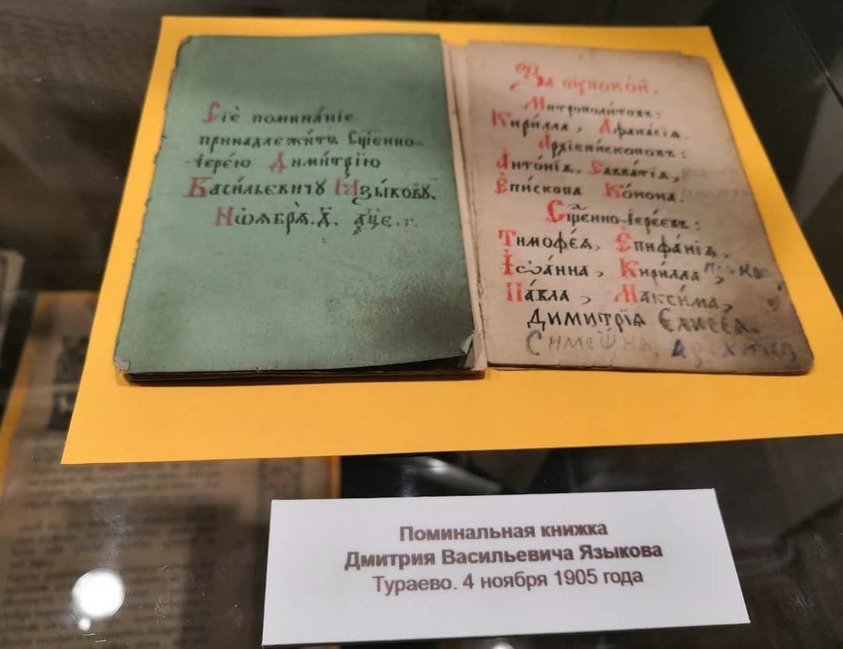 Сїѐ помина́нїе
принадлежи́тъ Сщ҃е́нно-
їере́ю Дими́трїю
Васи́льевичу Ꙗ҆зы́кову.
Ноѧбрѧ̀.д҃. ҂аце.г.
За оупоко́й.
Митрополи́товъ:
Кири́лла, Аѳана́сїѧ.
Архїепи́скоповъ:
Анто́нїѧ, Савва́тїѧ,
Епи́скопа Ко́нона.
Сщ҃е́нно-їере́евъ:
Тимоѳе́ѧ, Епифа́нїѧ,
Їѡа́нна, Кири́лла,
Па́вла, Макси́ма,
Димитрїѧ Елисеѧ.
Поминальная книжка
Дмитрия Васильевича Языкова
Тураево. 4 ноября 1905 года